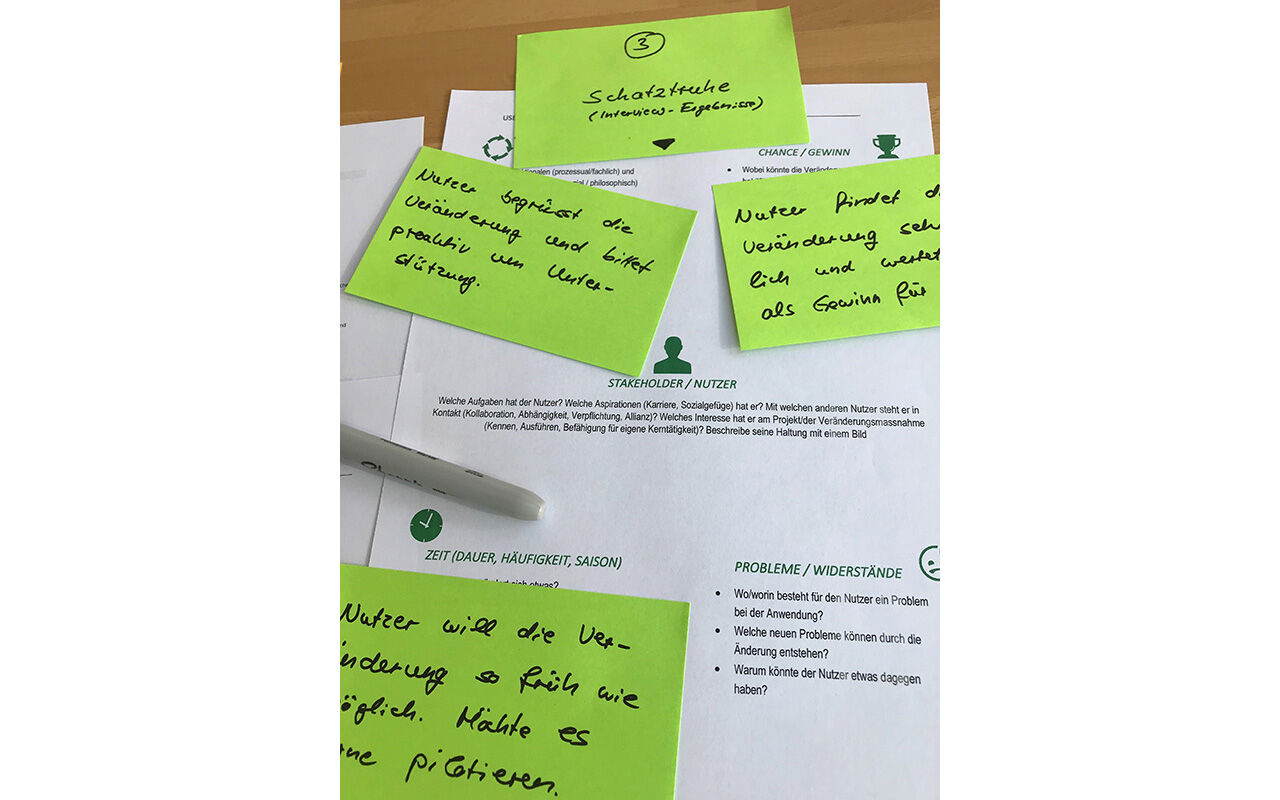 3
Schatztruhe
(Interview-Ergebnisse)
USE
CHANCE / GEWINN
Wobei könnte die Veränder
(prozessual/fachlich) und
/ philosophisch)
Nutzer begrüsst die
Veränderung und bittet
proaktiv um Unter-
stützung.
Nutzer findet d
Veränderung seh
lich und wertet
als Gewinn für
STAKEHOLDER / NUTZER
Welche Aufgaben hat der Nutzer? Welche Aspirationen (Karriere, Sozialgefüge) hat er? Mit welchen anderen Nutzer steht er in
Kontakt (Kollaboration, Abhängigkeit, Verpflichtung, Allianz)? Welches Interesse hat er am Projekt/der Veränderungsmassnahme
(Kennen, Ausführen, Befähigung für eigene Kerntätigkeit)? Beschreibe seine Haltung mit einem Bild
ZEIT (DAUER, HÄUFIGKEIT, SAISON)
sich etwas?
Nutzer will die Ver-
änderung so früh wie
möglich. Möhte es
rne pilotieren.
PROBLEME / WIDERSTÄNDE
• Wo/worin besteht für den Nutzer ein Problem
bei der Anwendung?
• Welche neuen Probleme können durch die
Änderung entstehen?
• Warum könnte der Nutzer etwas dagegen
haben?